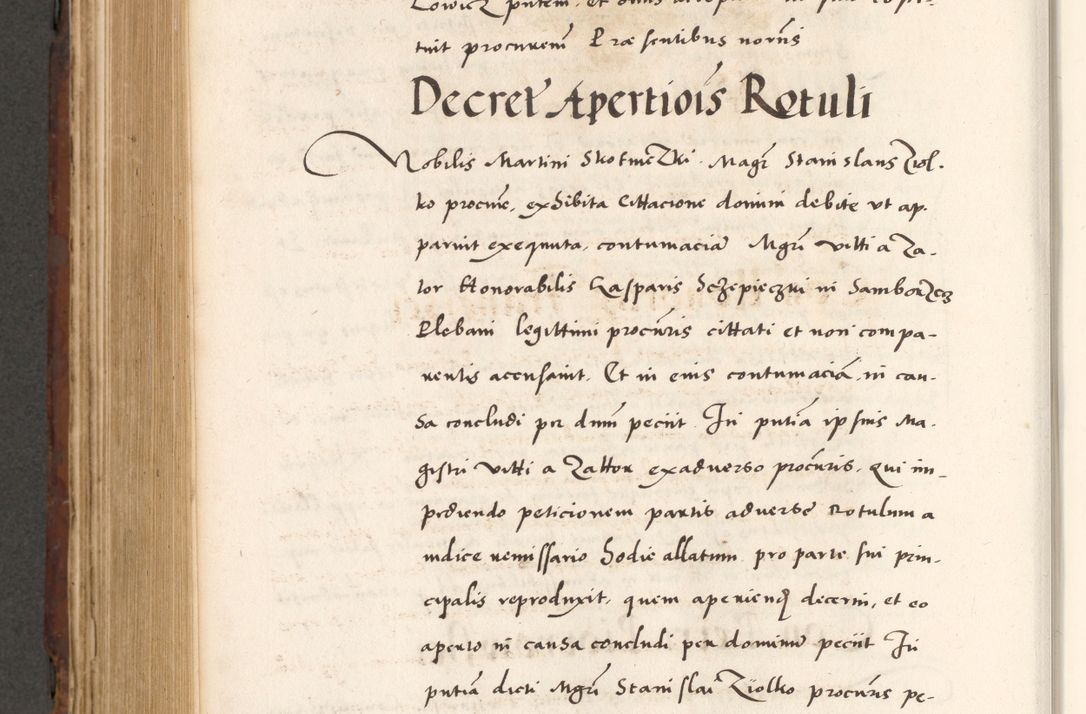 tuit procurem̃ Præsentibus norm̃s
Decret Apertiois Rotuli
Nobilis Martini Skotniczki. Magr̃i Stanislaus Ziol.
ko procure, exhibita Cittacione domini debite ut ap.
paruit exequuta, contumaciã Mgr̃i vitti a Za-
tor Honorabilis Gasparis Sczepieczki in Samborzecz
Plebani legittimi procur̃is cittati et non compa-
rentis accusauit. Et in eius contumaciã, in cau-
sa concludi per dnm̃ peciit In pn̄tia ipsius Ma.
gistri vitti a Zattor exaduerso procur̃is, qui im-
pediendo peticionem partis aduerse Rotulum a
iudice remissario hodie allatum pro parte sui prin-
cipalis reproduxit, quem aperiend decerni, et eo
aperto in causa concludi per dominum peciit In
pn̄tia dicti Mgr̃i Stanislai Ziolko procur̃is pe-